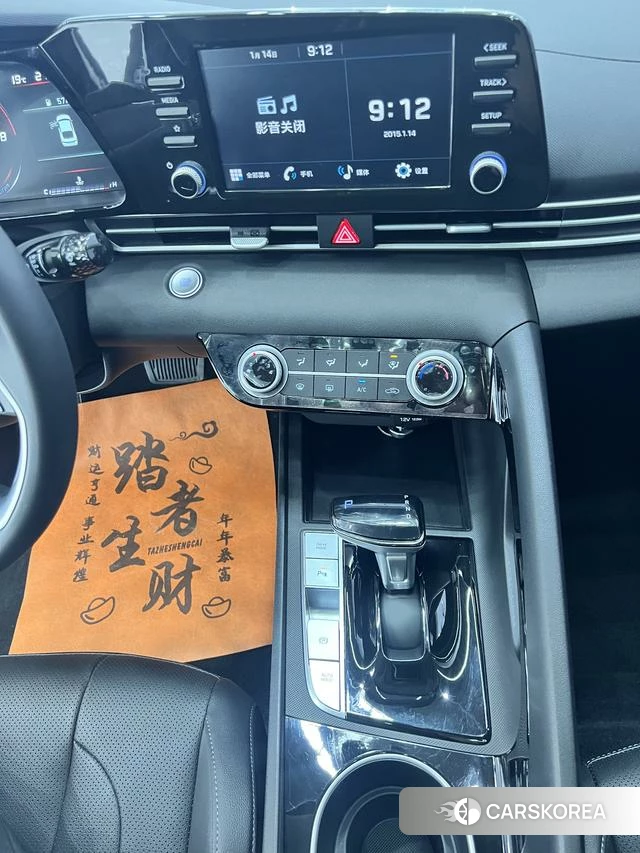 1月14日 9:12
RADIO
MEDIA
SETUP
<SEEK
TRACK>
影音关闭
9:12
2015.1.14
全部菜单 手机 媒体 设置
19℃
C H
A/C
12V
P
R
N
D
DRIVE MODE
AUTO HOLD
财运亨通
事业辉煌
踏者生财
TAZHESHENGCAI
年年恭富
CARSKOREA